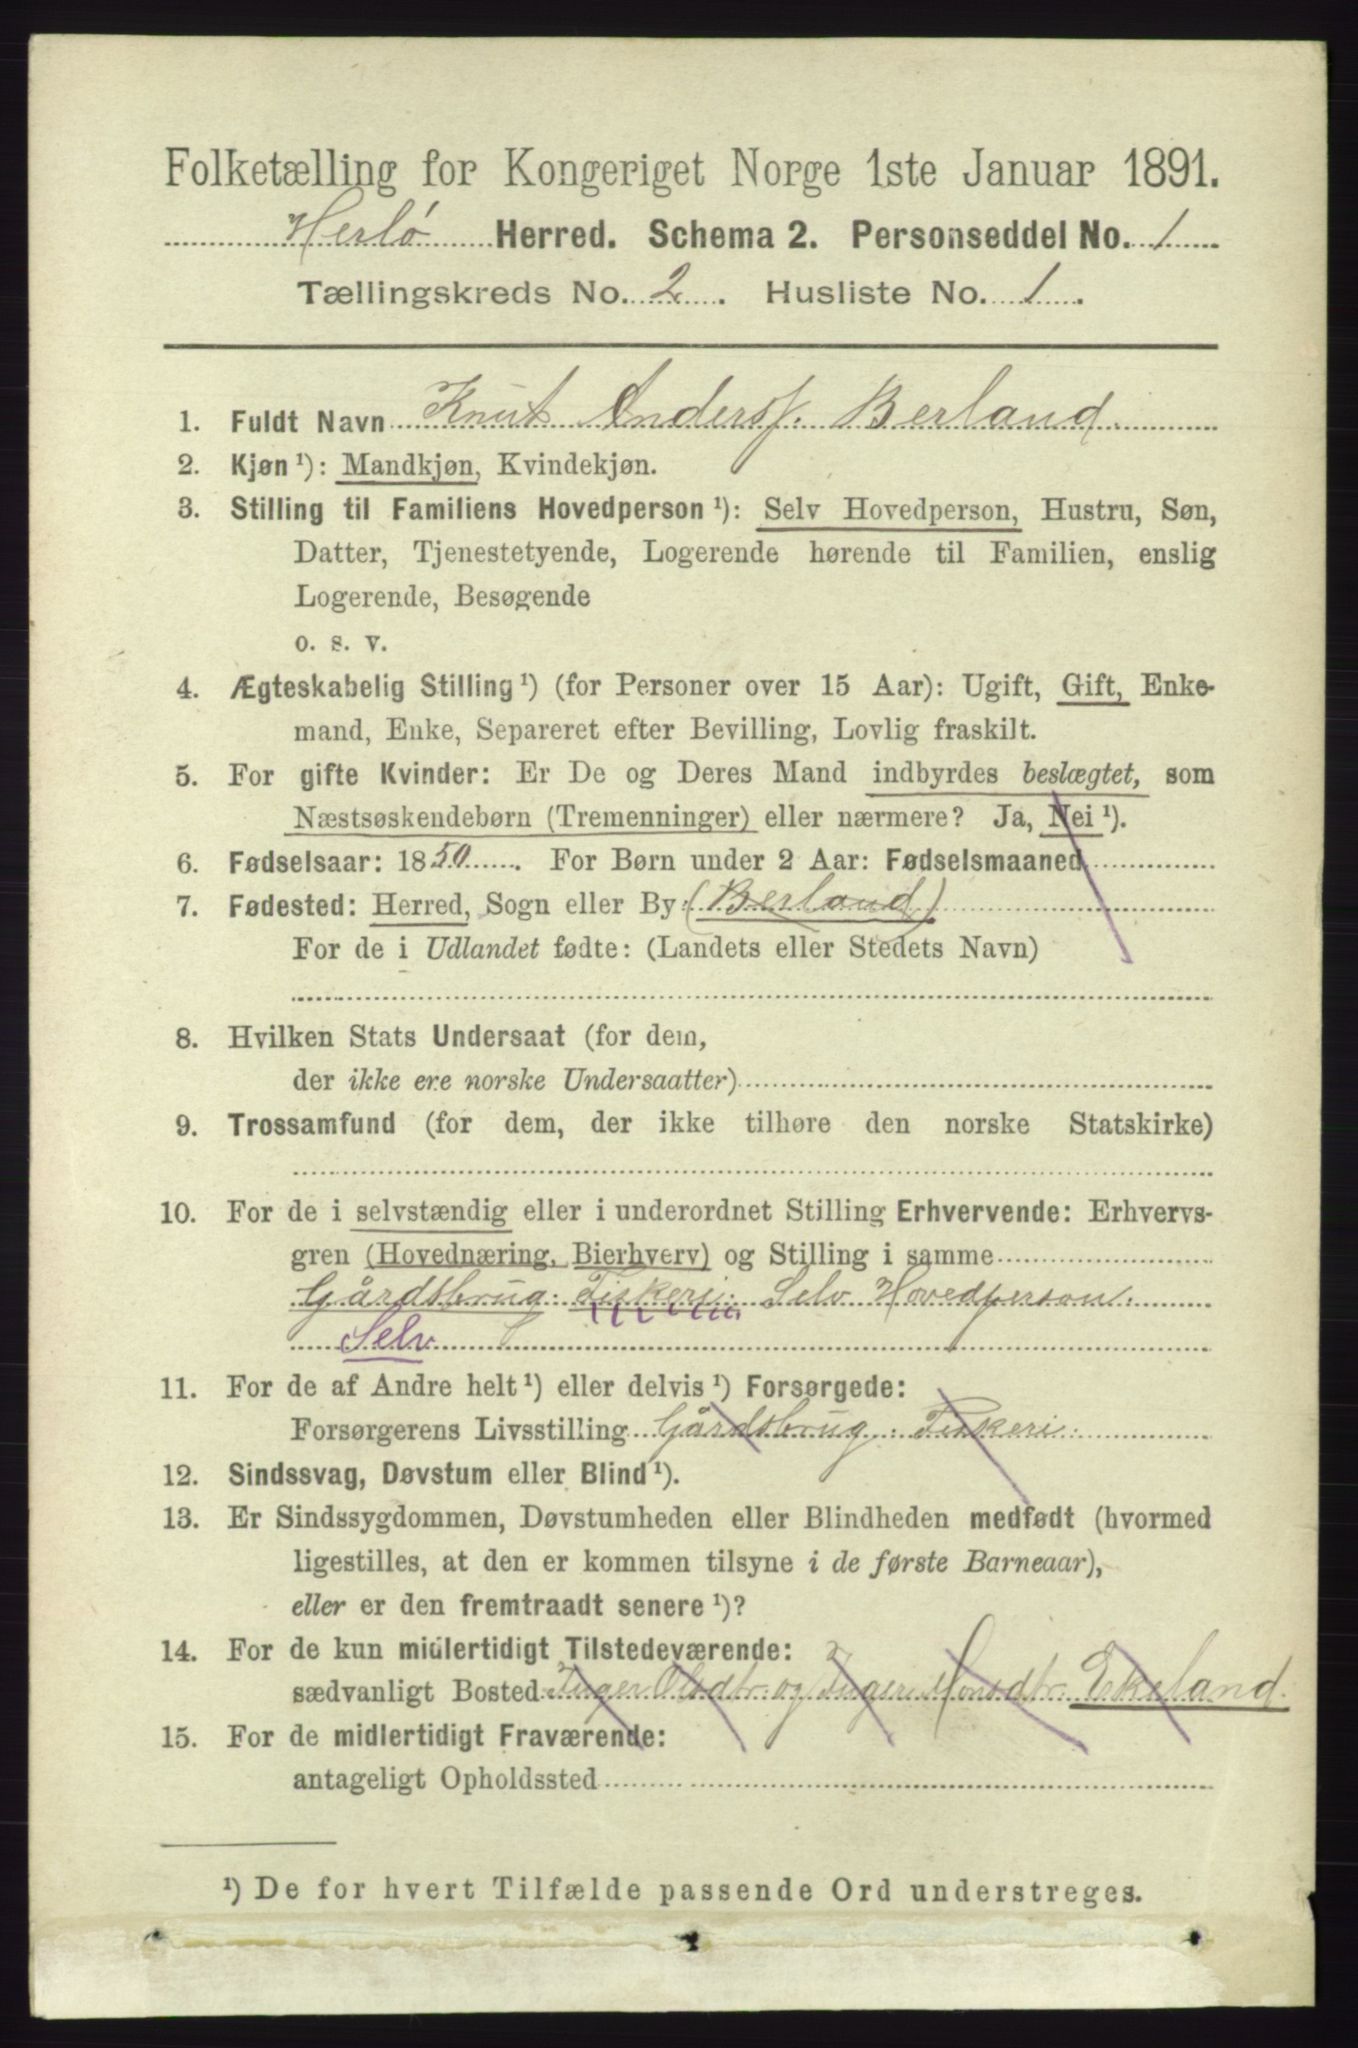 Folketælling for Kongeriget Norge 1ste Januar 1891.
Herlø Herred. Schema 2. Personseddel No. 1
Tællingskreds No. 2. Husliste No. 1.
1. Fuldt Navn Knut Andersf. Berland
2. Kjøn ¹): Mandkjøn, Kvindekjøn.
3. Stilling til Familiens Hovedperson ¹): Selv Hovedperson, Hustru, Søn,
Datter, Tjenestetyende, Logerende hørende til Familien, enslig
Logerende, Besøgende
o. s. v.
4. Ægteskabelig Stilling ¹) (for Personer over 15 Aar): Ugift, Gift, Enke-
mand, Enke, Separeret efter Bevilling, Lovlig fraskilt.
5. For gifte Kvinder: Er De og Deres Mand indbyrdes beslægtet, som
Næstsøskendebørn (Tremenninger) eller nærmere? Ja, Nei ¹).
6. Fødselsaar: 1850. For Børn under 2 Aar: Fødselsmaaned
7. Fødested: Herred, Sogn eller By (Berland)
For de i Udlandet fødte: (Landets eller Stedets Navn)
8. Hvilken Stats Undersaat (for dem,
der ikke ere norske Undersaatter)
9. Trossamfund (for dem, der ikke tilhøre den norske Statskirke)
10. For de i selvstændig eller i underordnet Stilling Erhvervende: Erhvervs-
gren (Hovednæring, Bierhverv) og Stilling i samme
Gårdsbrug: Fiskeri: Selv Hovedperson.
Selv
11. For de af Andre helt ¹) eller delvis ¹) Forsørgede:
Forsørgerens Livsstilling Gårdsbrug: Fiskeri.
12. Sindssvag, Døvstum eller Blind ¹).
13. Er Sindssygdommen, Døvstumheden eller Blindheden medfødt (hvormed
ligestilles, at den er kommen tilsyne i de første Barneaar),
eller er den fremtraadt senere ¹)?
14. For de kun midlertidigt Tilstedeværende:
sædvanligt Bosted Inger Olsdtr. og Inger Monsdtr. Ekeland.
15. For de midlertidigt Fraværende:
antageligt Opholdssted
¹) De for hvert Tilfælde passende Ord understreges.